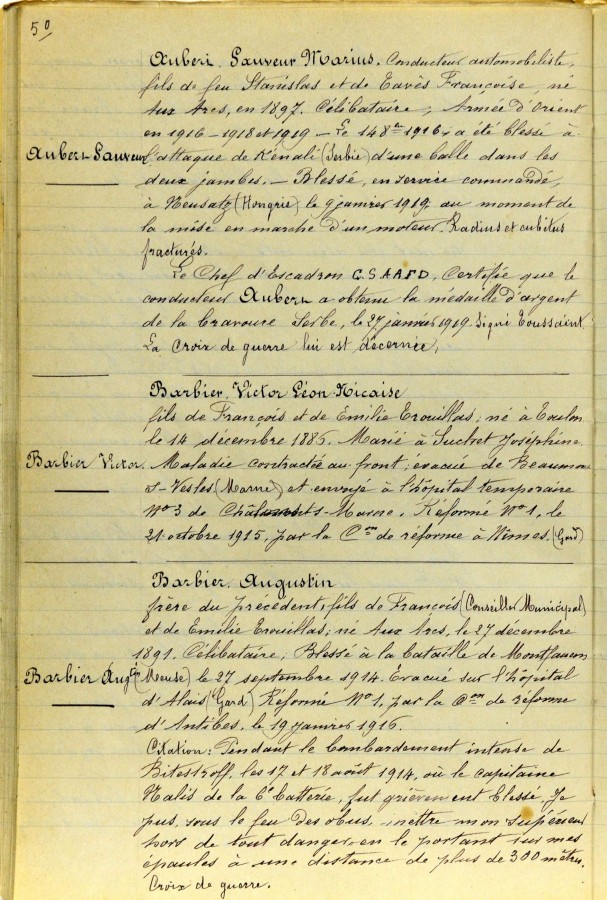 50
Auberi. Sauveur Marius. Conducteur automobiliste,
fils de feu Stanislas et de Eavès Françoise, né
Aux Arcs, en 1897. Célibataire; Armée d'Orient
en 1916-1918 et 1919 - Le 1916; a été blessé à
Auberi Sauveur
l'attaque de Kénali (Serbie) d'une balle dans les
deux jambes. - Blessé, en service commandé,
à Neusatz (Hongrie) le 9 janvier 1919 au moment de
la mise en marche d'un moteur. Radius et cubitus
fracturés.
Le Chef d'Escadron C.S.A.A.F.D. Certifie que le
conducteur Auberi a obtenu la médaille d'argent
de la bravoure Serbe, le 27 janvier 1919. Signé Toussaint.
La Croix de guerre lui est décernée.
Barbier. Victor Léon-Nicaise
fils de François et de Emilie Trouillas; né à Toulon
le 14 décembre 1885. Marié à Suchet Joséphine.
Barbier Victor.
Maladie contractée au front; évacué de Beaumont
s-Vesles (Marne) et envoyé à l'hôpital temporaire
N°3 de Châlons-s-Marne. Réformé N°1, le
21 octobre 1915, par la Con de réforme à Nîmes. (Gard)
Barbier. Augustin
frère du précédent, fils de François (Conseiller Municipal)
et de Emilie Trouillas; né Aux Arcs, le 27 décembre
1891. Célibataire; Blessé à la bataille de Montfaucon
Barbier Augtin
(Meuse) le 27 septembre 1914. Evacué sur l'hôpital
d'Alais (Gard) Réformé N°1, par la Con de réforme
d'Antibes, le 19 janvier 1916.
Citation: Pendant le bombardement intense de
les 17 et 18 août 1914, où le capitaine
Nalis de la 6e batterie, fut grièvement blessé, Je
pus, sous le feu des obus, mettre mon supérieur
hors de tout danger, en le portant sur mes
épaules à une distance de plus de 300 mètres.
Croix de guerre.